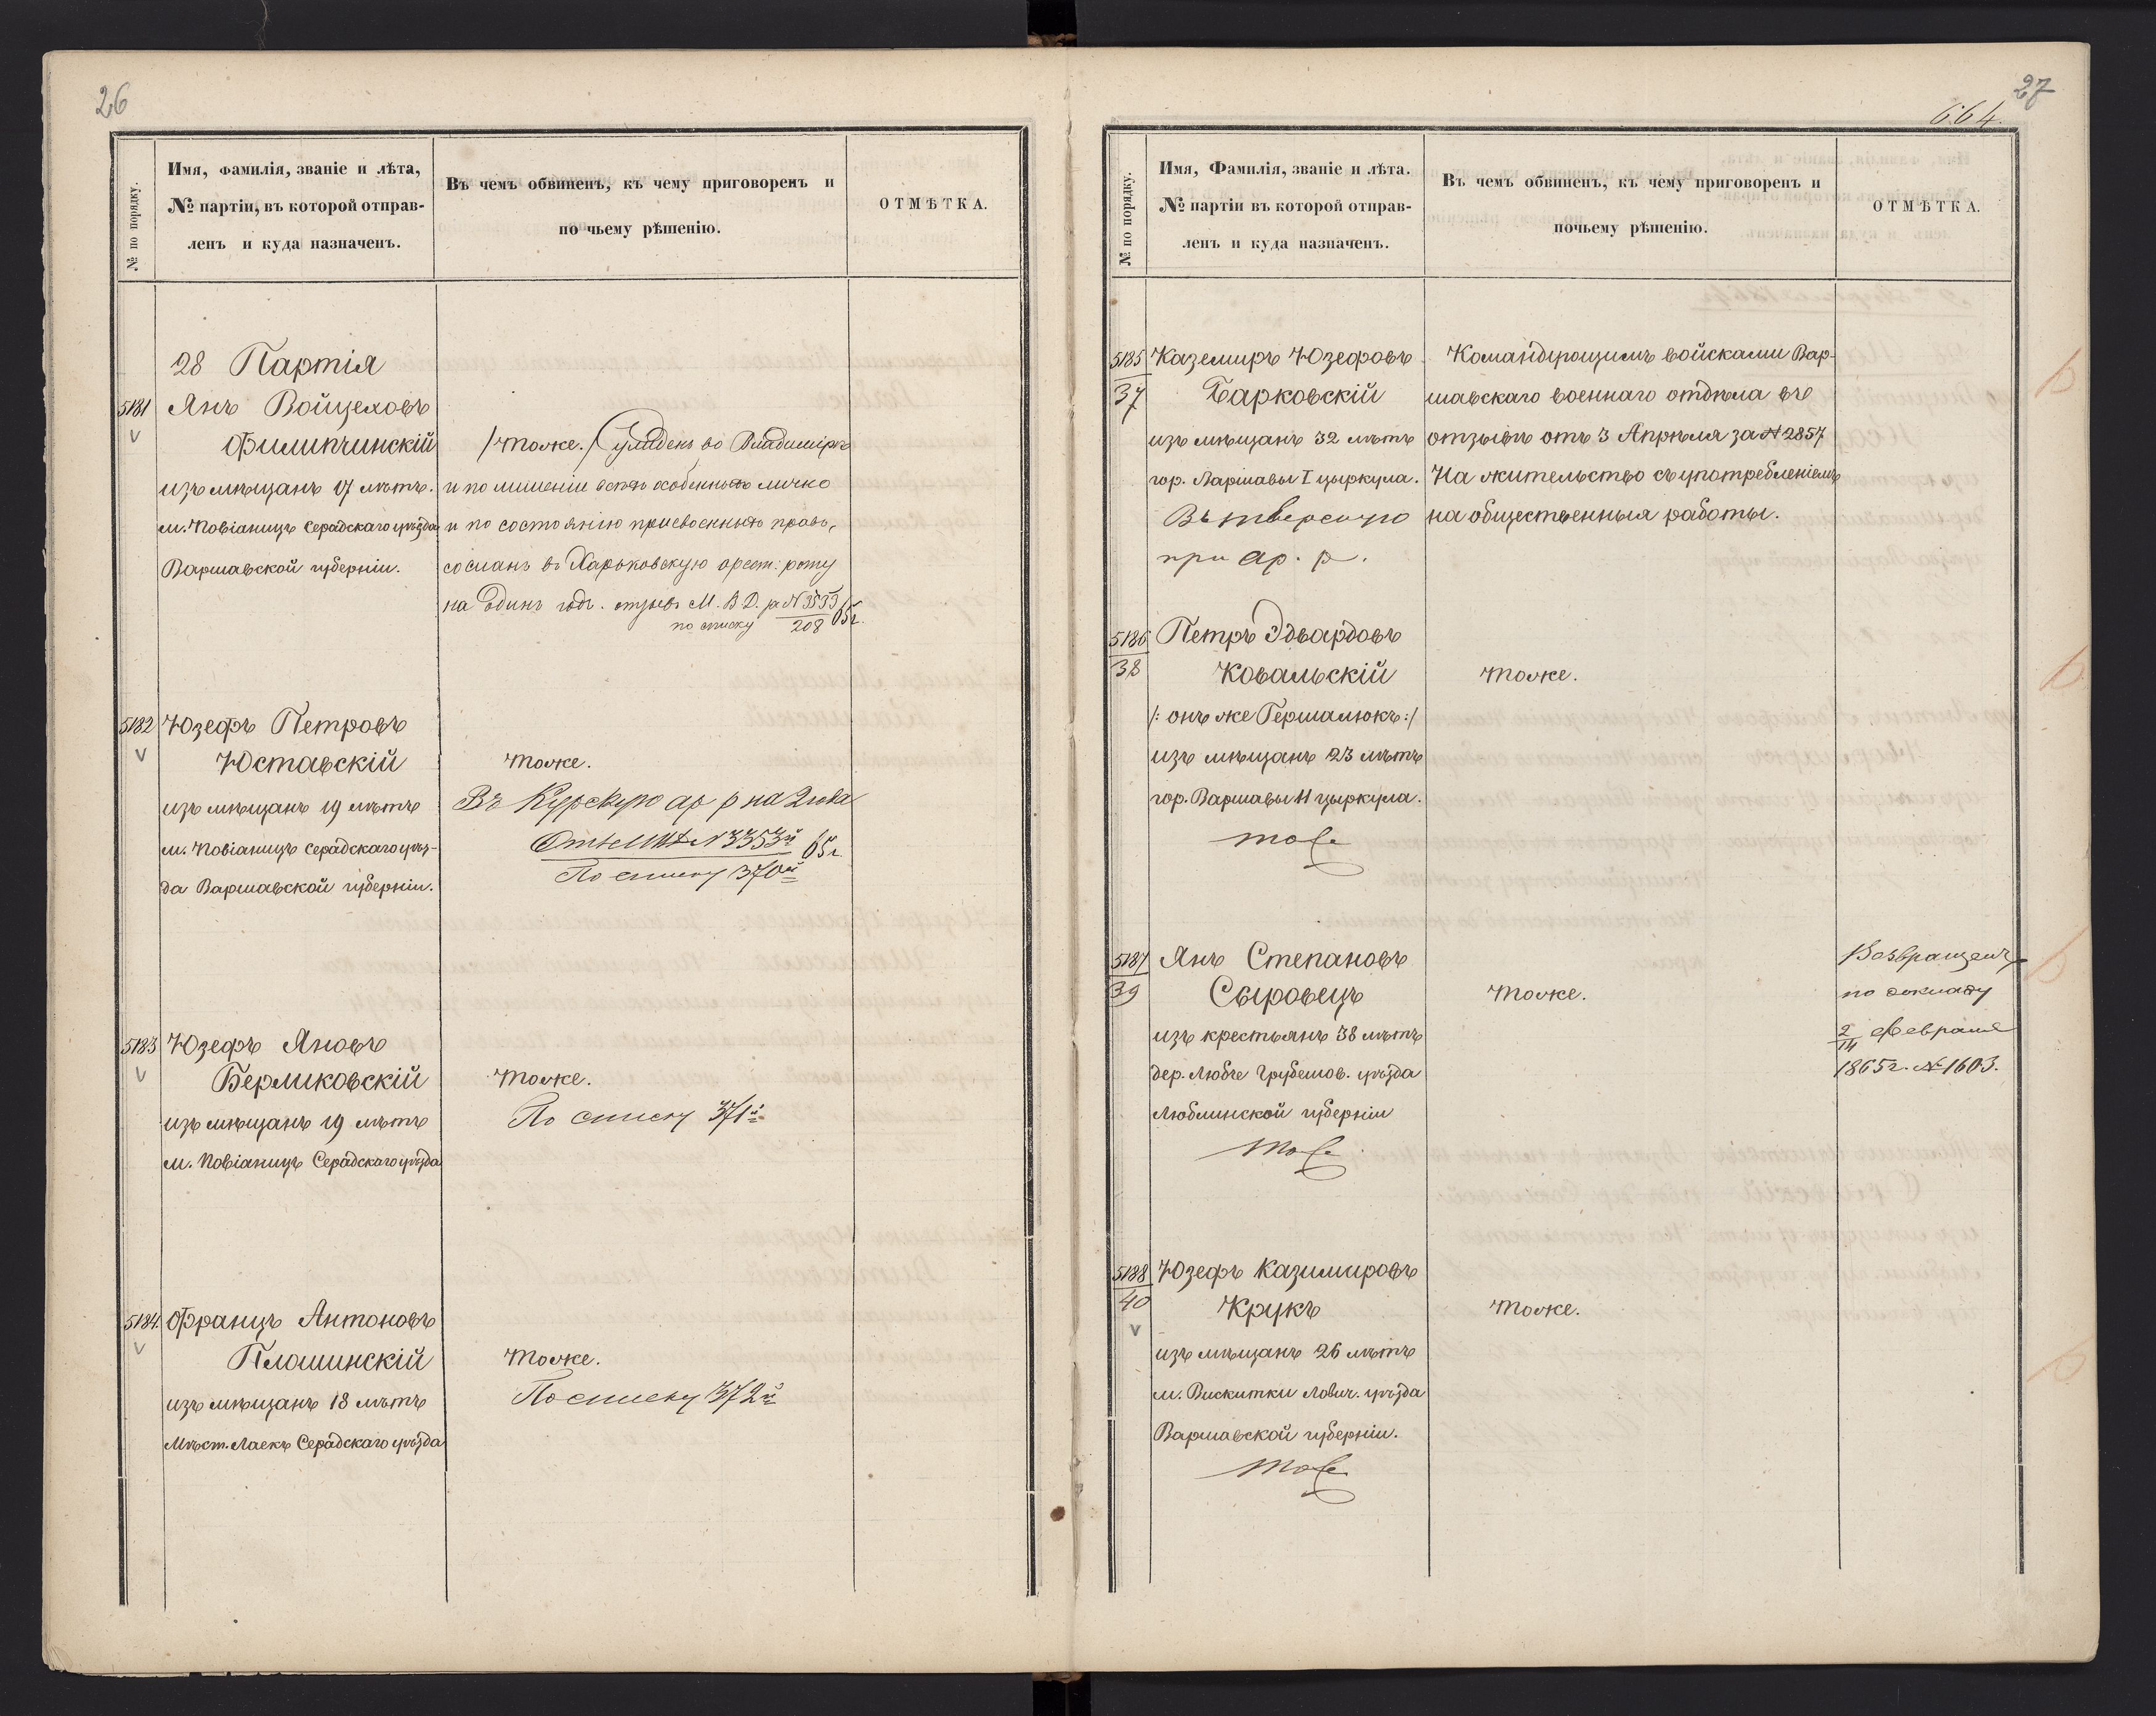 26
№ по порядку.
Имя, фамилія, званіе и лѣта,
№ партіи, въ которой отправ-
ленъ и куда назначенъ.
Въ чемъ обвиненъ, къ чему приговоренъ и
по чьему рѣшенію.
ОТМѢТКА.
28 Партія
5181 Янъ Войцеховъ
Филипчинскій
/тоже./ Сужденъ во Владимірѣ
изъ мѣщанъ 17 лѣтъ.
и по лишеніи всѣхъ особенныхъ лично
м. Повіаницъ Серадскаго уѣзда
и по состоянію присвоенныхъ правъ,
Варшавской губерніи.
сосланъ въ Харьковскую арест: роту
на Одинъ годъ. отзывъ М. В. Д. за № 3535
по списку 208 65г.
5182 Юзефъ Петровъ
Юставскій
тоже.
изъ мѣщанъ 19 лѣтъ
Въ Курскую ар р на 2 года
м. Повіаницъ Серадскаго уѣз-
№ 3353й 65г.
да Варшавской губерніи.
По списку 370й
5183 Юзефъ Яновъ
Берликовскій
тоже.
изъ мѣщанъ 19 лѣтъ
По списку 371й
м. Повіаницъ Серадскаго уѣзда
5184. Францъ Антоновъ
Плошинскій
тоже.
изъ мѣщанъ 18 лѣтъ
По списку 372й
Мѣст. Ласкъ Серадскаго уѣзда
27
664.
№ по порядку.
Имя, Фамилія, званіе и лѣта.
№ партіи въ которой отправ-
ленъ и куда назначенъ.
Въ чемъ обвиненъ, къ чему приговоренъ и
почьему рѣшенію.
ОТМѢТКА.
5185 Каземиръ Юзефовъ
Командующимъ войсками Вар-
37 Барковскій
шавскаго военнаго отдѣла въ
изъ мѣщанъ 32 лѣтъ
отзывѣ отъ 3 Апрѣля за № 2857
гор. Варшавы I цыркула.
На жительство съ употребленіемъ
Въ тверскую
на общественныя работы.
при ар. р.
5186 Петръ Эдвардовъ
38 Ковальскій
тоже.
/: онъ же Гершалюкъ :/
изъ мѣщанъ 23 лѣтъ
гор. Варшавы 11 цыркула.
тоже
5187 Янъ Степановъ
Возвращенъ
39 Сыровецъ
тоже.
по докладу
изъ крестьянъ 38 лѣтъ
2/14 Февраля
дер. Любче Грубешов. уѣзда
1865г. № 1603.
Люблинской губерніи
тоже
5188 Юзефъ Казимировъ
40 Крукъ
тоже.
изъ мѣщанъ 26 лѣтъ
м. Вискитки Лович. уѣзда
Варшавской губерніи.
тоже